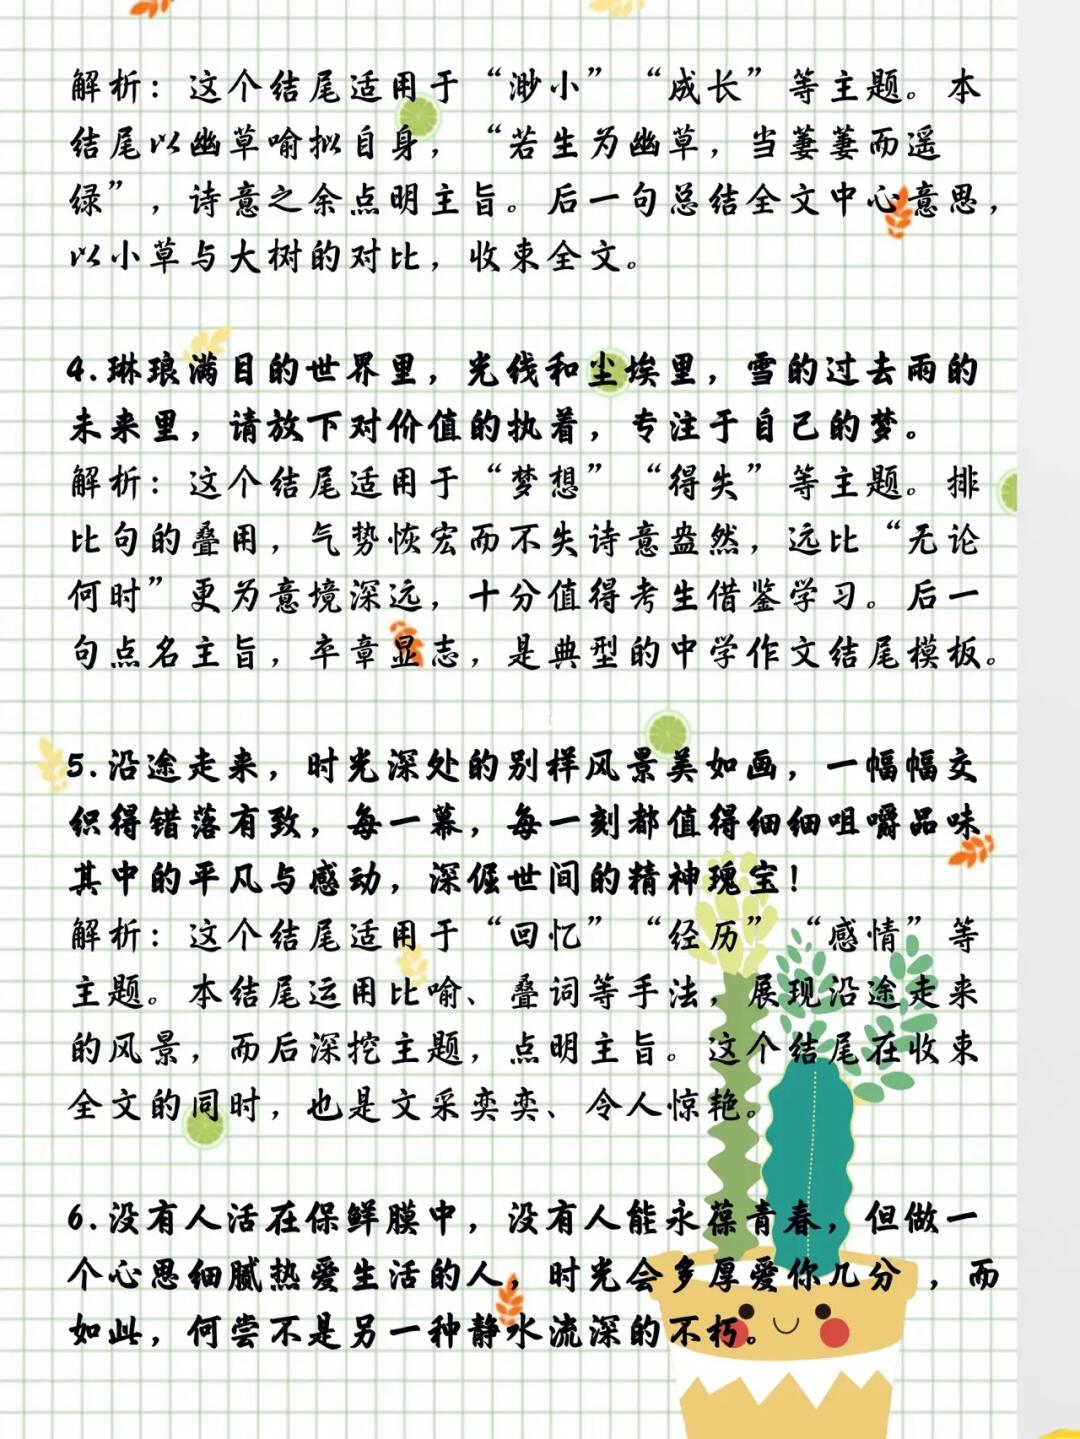 解析：这个结尾适用于“渺小”“成长”等主题。本
结尾以幽草喻拟自身，“若生为幽草，当萋萋而遥
绿”，诗意之余点明主旨。后一句总结全文中心意思，
以小草与大树的对比，收束全文。
4.琳琅满目的世界里，光线和尘埃里，雪的过去雨的
未来里，请放下对价值的执着，专注于自己的梦。
解析：这个结尾适用于“梦想”“得失”等主题。排
比句的叠用，气势恢宏而不失诗意盎然，远比“无论
何时”更为意境深远，十分值得考生借鉴学习。后一
句点名主旨，卒章显志，是典型的中学作文结尾模板。
5.沿途走来，时光深处的别样风景美如画，一幅幅交
织得错落有致，每一幕，每一刻都值得细细咀嚼品味
其中的平凡与感动，深倔世间的精神瑰宝！
解析：这个结尾适用于“回忆”“经历”“感情”等
主题。本结尾运用比喻、叠词等手法，展现沿途走来
的风景，而后深挖主题，点明主旨。这个结尾在收束
全文的同时，也是文采奕奕、令人惊艳。
6.没有人活在保鲜膜中，没有人能永葆青春，但做一
个心思细腻热爱生活的人，时光会多厚爱你几分 ，而
如此，何尝不是另一种静水流深的不朽。